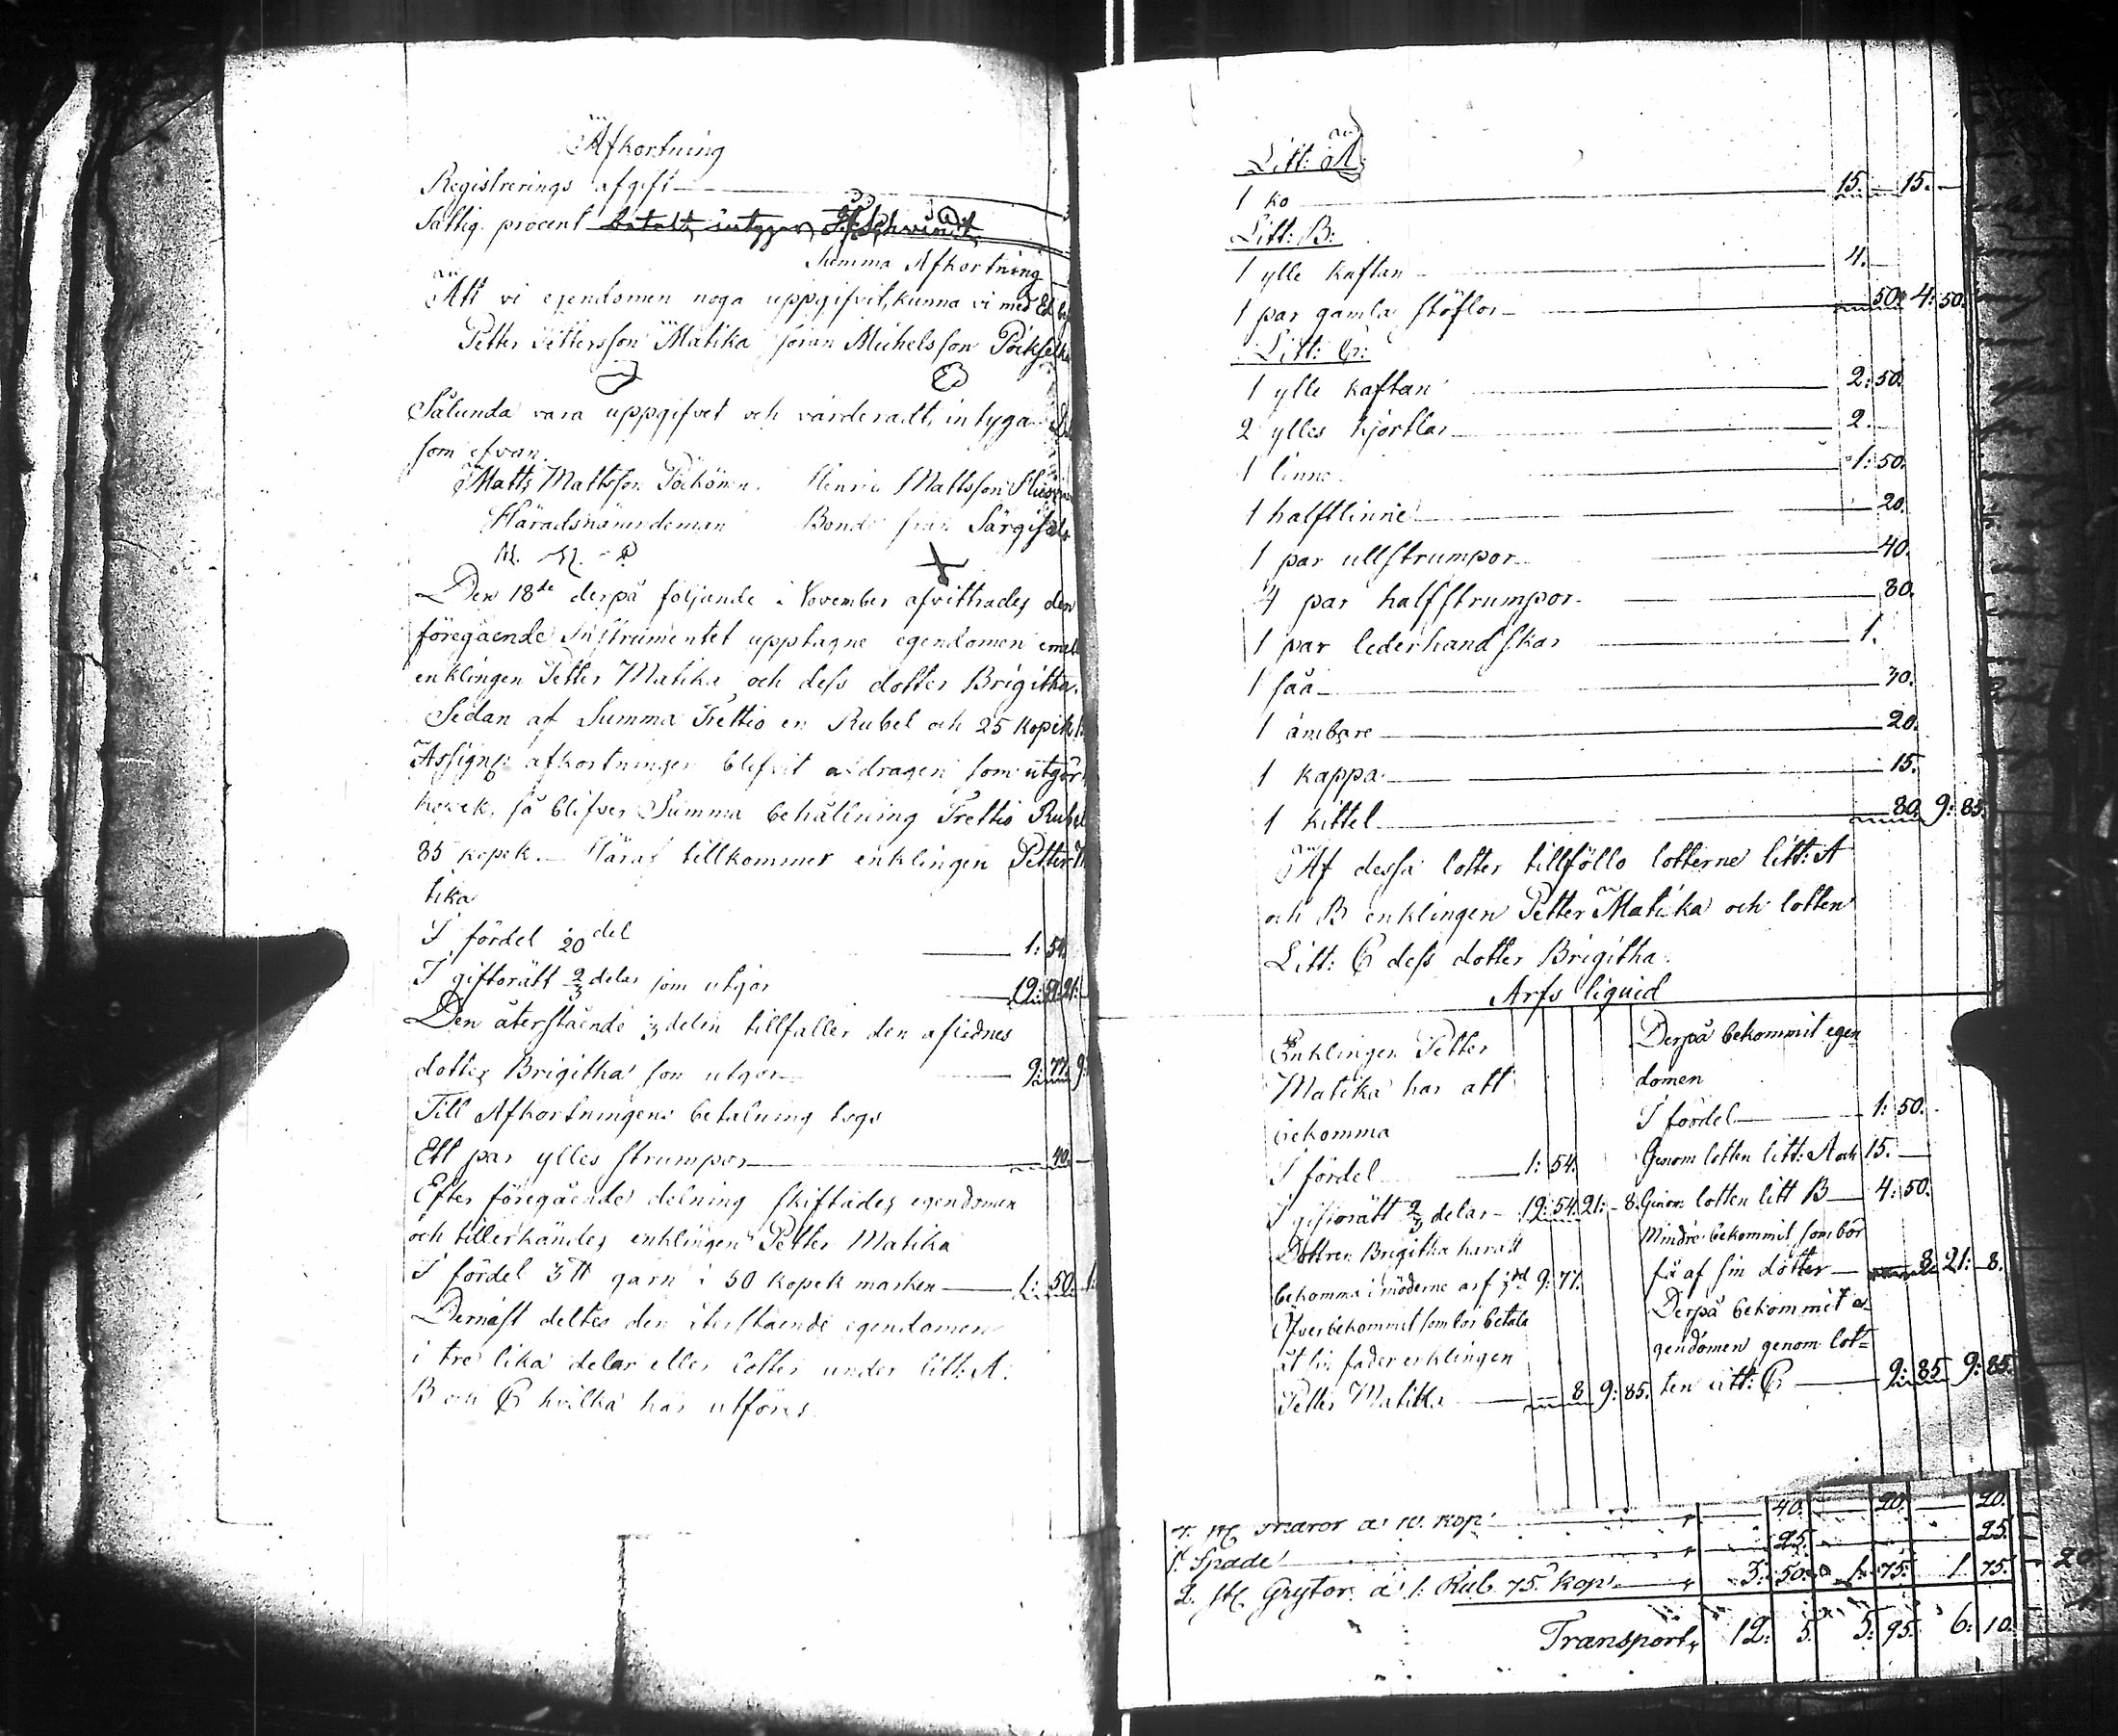 Afkortning
Registrerings afgift
Fattig procent betalt, intygar
Summa Afkortning
Att vi egendomen noga uppgifvit, kunna vi med Ed
Petter Pettersson Matika Göran Michelsson
Sålunda vara uppgifvet och värderadt, intyga
som ofvan.
Matts Mattsson Pöckönen. Henric Mattsson
Häradsnämndeman Bonde från
M. M. P
Den 18de derpå följande November afvittrades den
föregående Instrumentet upptagne egendomen
enklingen Petter Matika och dess dotter Brigitha.
Sedan af Summa Trettio en Rubel och 25 kopek
Assign: afkortningen blifvit afdragen som utgör
kopek, så blifver Summa behållning Trettio Rubel
85 kopek. Häraf tillkommer enklingen Petter Ma
tika
I fördel 1/20 del 1: 54
I giftorätt 2/3 delar som utgör 19: 54. 21:
Den återstående 1/3 delen tillfaller den aflednes
dotter Brigitha som utgör 9: 77. 9:
Till Afkortningens betalning togs
Ett par ylles strumpor 40.
Efter föregående delning skiftades egendomen
och tillerkändes enklingen Petter Matika
I fördel 3 ℔ garn i 50 kopek marken 1: 50. 1:
Dernäst deltes den återstående egendomen
i tre lika delar eller lotter under litt: A.
B och C hvilka här utföres.
Litt: A:
1 ko 15. 15.
Litt: B:
1 ylle kaftan 4.
1 par gamla stöflor 50. 4: 50.
Litt: C:
1 ylle kaftan 2: 50.
2 ylles kjortlar 2.
1 linne 1: 50.
1 halftlinne 20.
1 par ullstrumpor 40.
4 par halfstrumpor 80.
1 par lederhandskar 1.
1 såå 30.
1 ämbare 20.
1 kappa 15.
1 kittel 80. 9: 85.
Af dessa lotter tillföllo lotterne litt: A
och B enklingen Petter Matika och lotten
Litt: C dess dotter Brigitha.
Arfs liquid
Enklingen Petter
Matika har att
bekomma
I fördel 1: 54.
I giftorätt 2/3 delar 19: 54. 21: 8.
Dottren Brigitha har att
bekomma i möderne arf 1/3 del 9: 77.
Öfver bekommit som bör betala
åt sin fader enklingen
Petter Matika 8 9: 85.
Derpå bekommit egen
domen
I fördel 1: 50.
Genom lotten litt: A och 15.
Genom lotten litt B 4: 50.
Mindre bekommit, som bör
få af sin dotter 8. 21: 8.
Derpå bekommit e
gendomen genom lot=
ten litt: C 9: 85 9: 85.
à 10. kop 40. 20. 20.
1. Spade 25. 25.
2. st. Grytor à 1. Rub. 75. kop. 3: 50. 1. 75. 1. 75.
Transport, 12: 5. 5: 95. 6: 10.